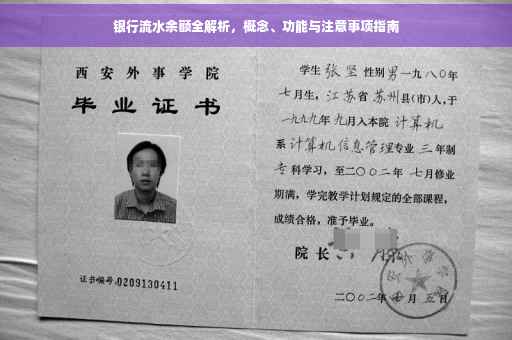 银行流水余额全解析，概念、功能与注意事项指南
西安外事学院
毕业证书
证书编号:0209130411
学生 张坚 性别 男 一九八〇年
七月生，江苏省 苏州县(市)人，于
一九九九年 九月入本院 计算机
系 计算机信息管理专业 三 年制
专科学习，至二〇〇二年 七月修业
期满，学完教学计划规定的全部课程，
成绩合格，准予毕业。
院长
二〇〇二年 月 五日